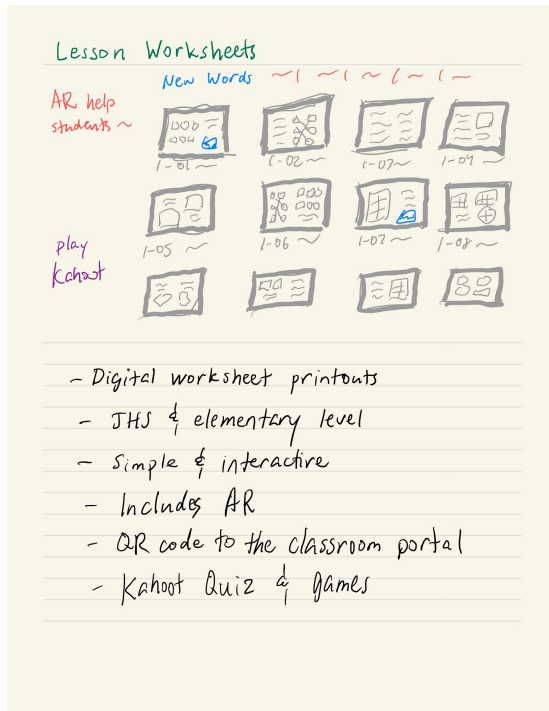 Lesson Worksheets
New Words
AR help
students
1-01
1-02
1-03
1-04
1-05
1-06
1-07
1-08
play
Kahoot
- Digital worksheet printouts
- JHS & elementary level
- Simple & interactive
- Includes AR
- QR code to the classroom portal
- Kahoot Quiz & games